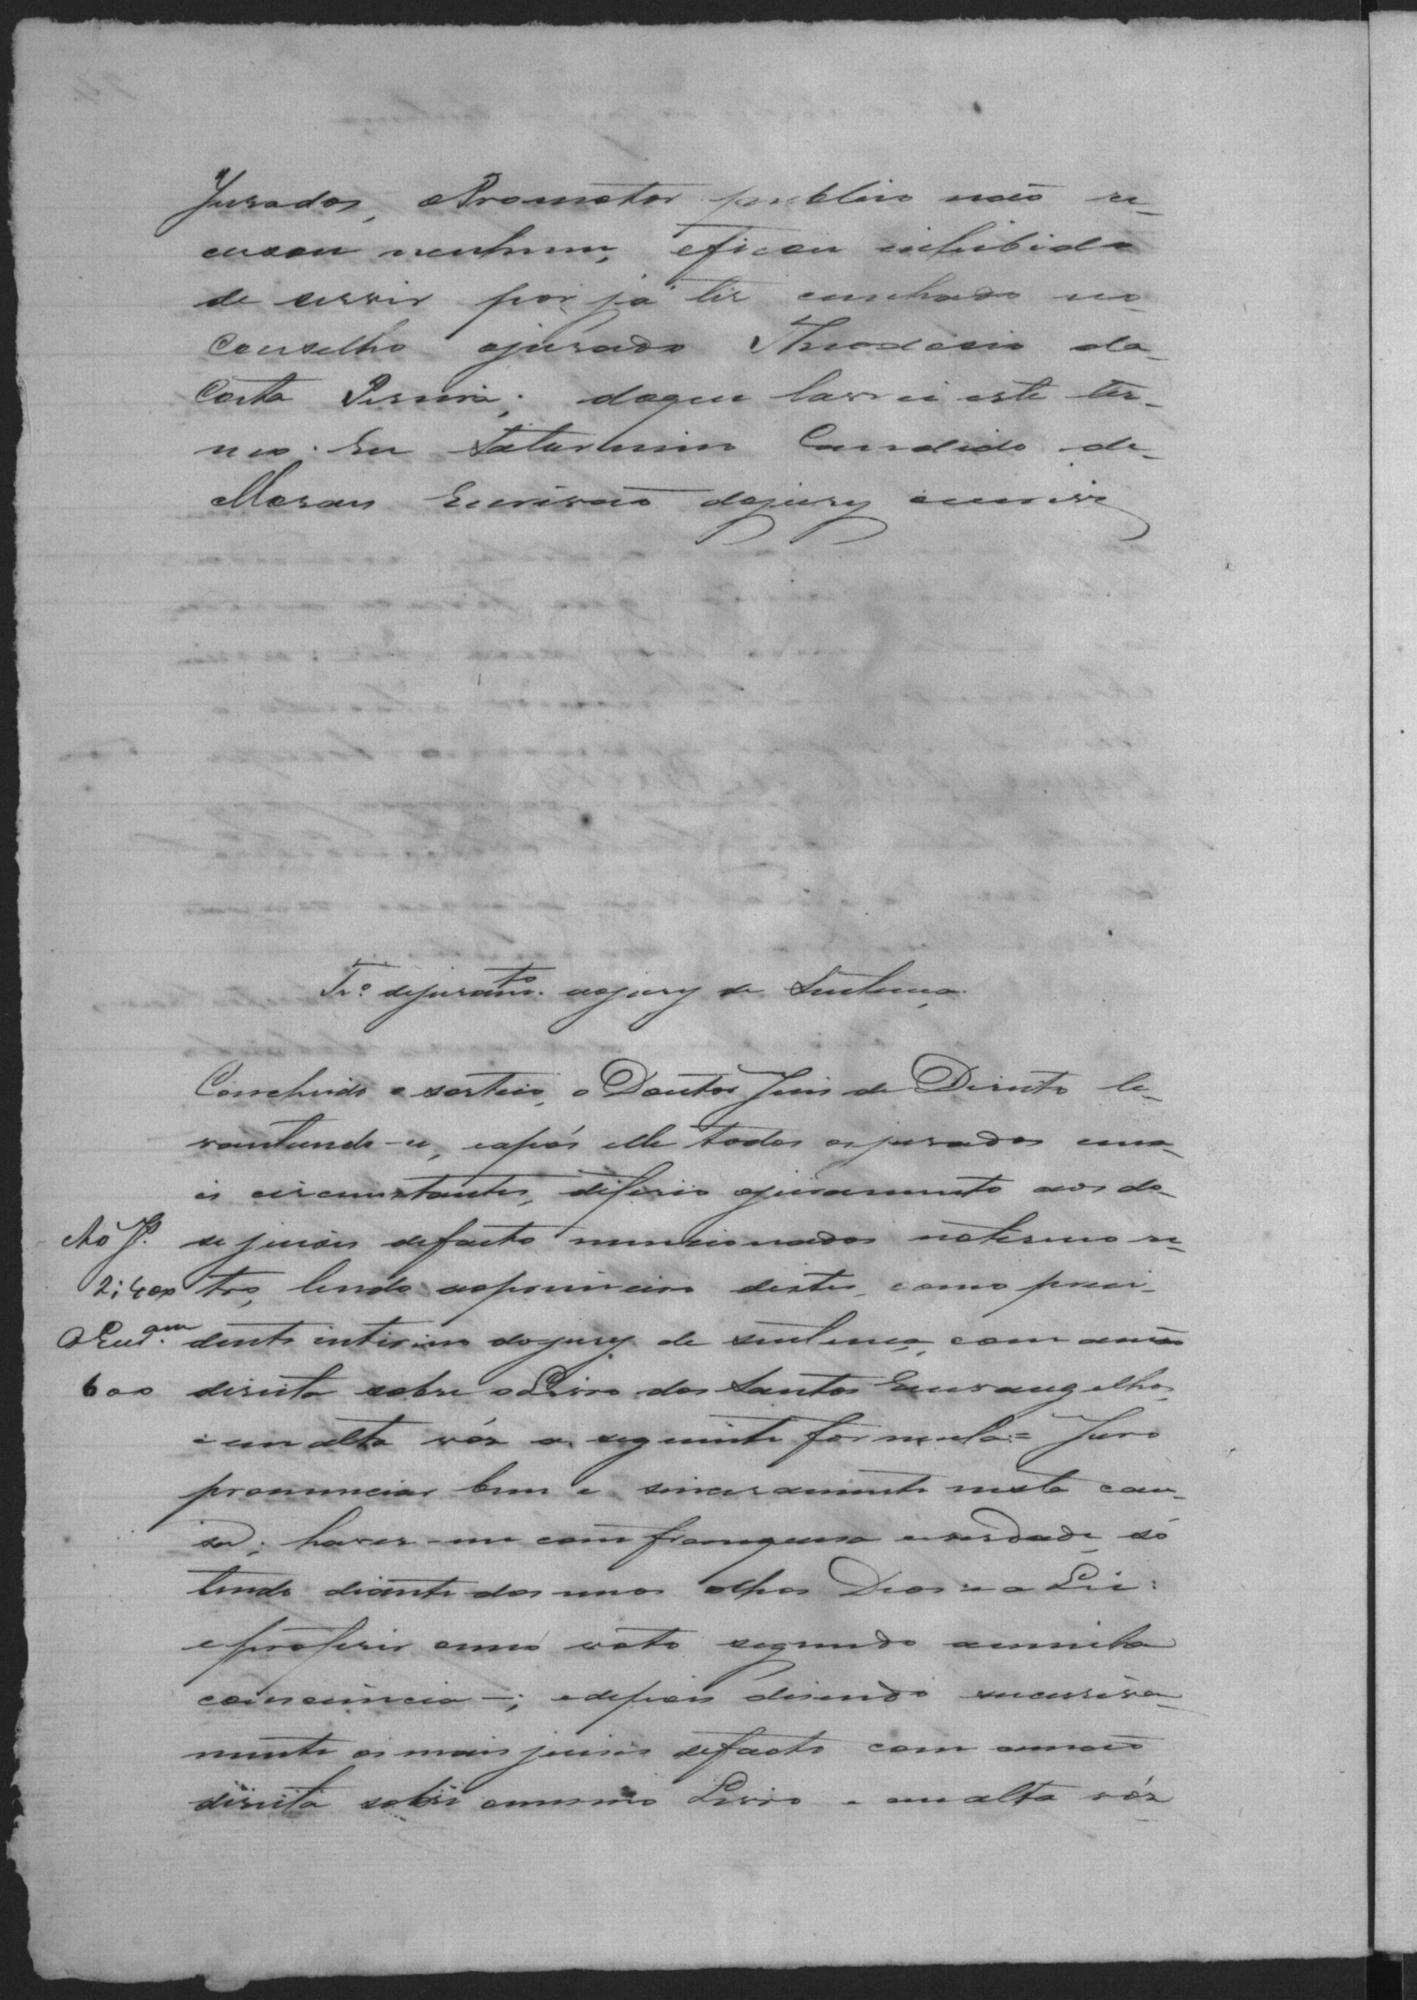 Jurados, o Promotor publico não re-
cusou nenhum, e ficou inhibido
de servir por já ter cunhado no
Conselho o jurado Theodosio da
Costa Pereira; do que lavrei este ter-
mo. Eu Saturnino Candido de
Moraes Escrivão do jury escrevi
Tr.º de juramto. ao jury de Sentença.
Concluido o sorteio, o Doutor Juis de Direito le-
vantando-se, e após elle todos os jurados e ma-
is circumstantes, diferio o juramento aos do-
Ao J. se juises de facto mencionados no termo re-
2:400 tro, lendo ao primeiro destes, como presi-
O Escr.am dente interino do jury de sentença, com a mão
600 direita sobre o Livro dos Santos Euvangelhos,
e em alta vós a seguinte formula:= Juro
pronunciar bem e sinceramente nesta cau-
sa; haver-me com franquesa e verdade, só
tendo diante dos meus olhos Deos e a Lei:
e proferir o meu voto segundo a minha
consciencia -; e depois disendo sucessiva-
mente os mais juises de facto com a mão
direita sobre o mesmo Livro e em alta vós